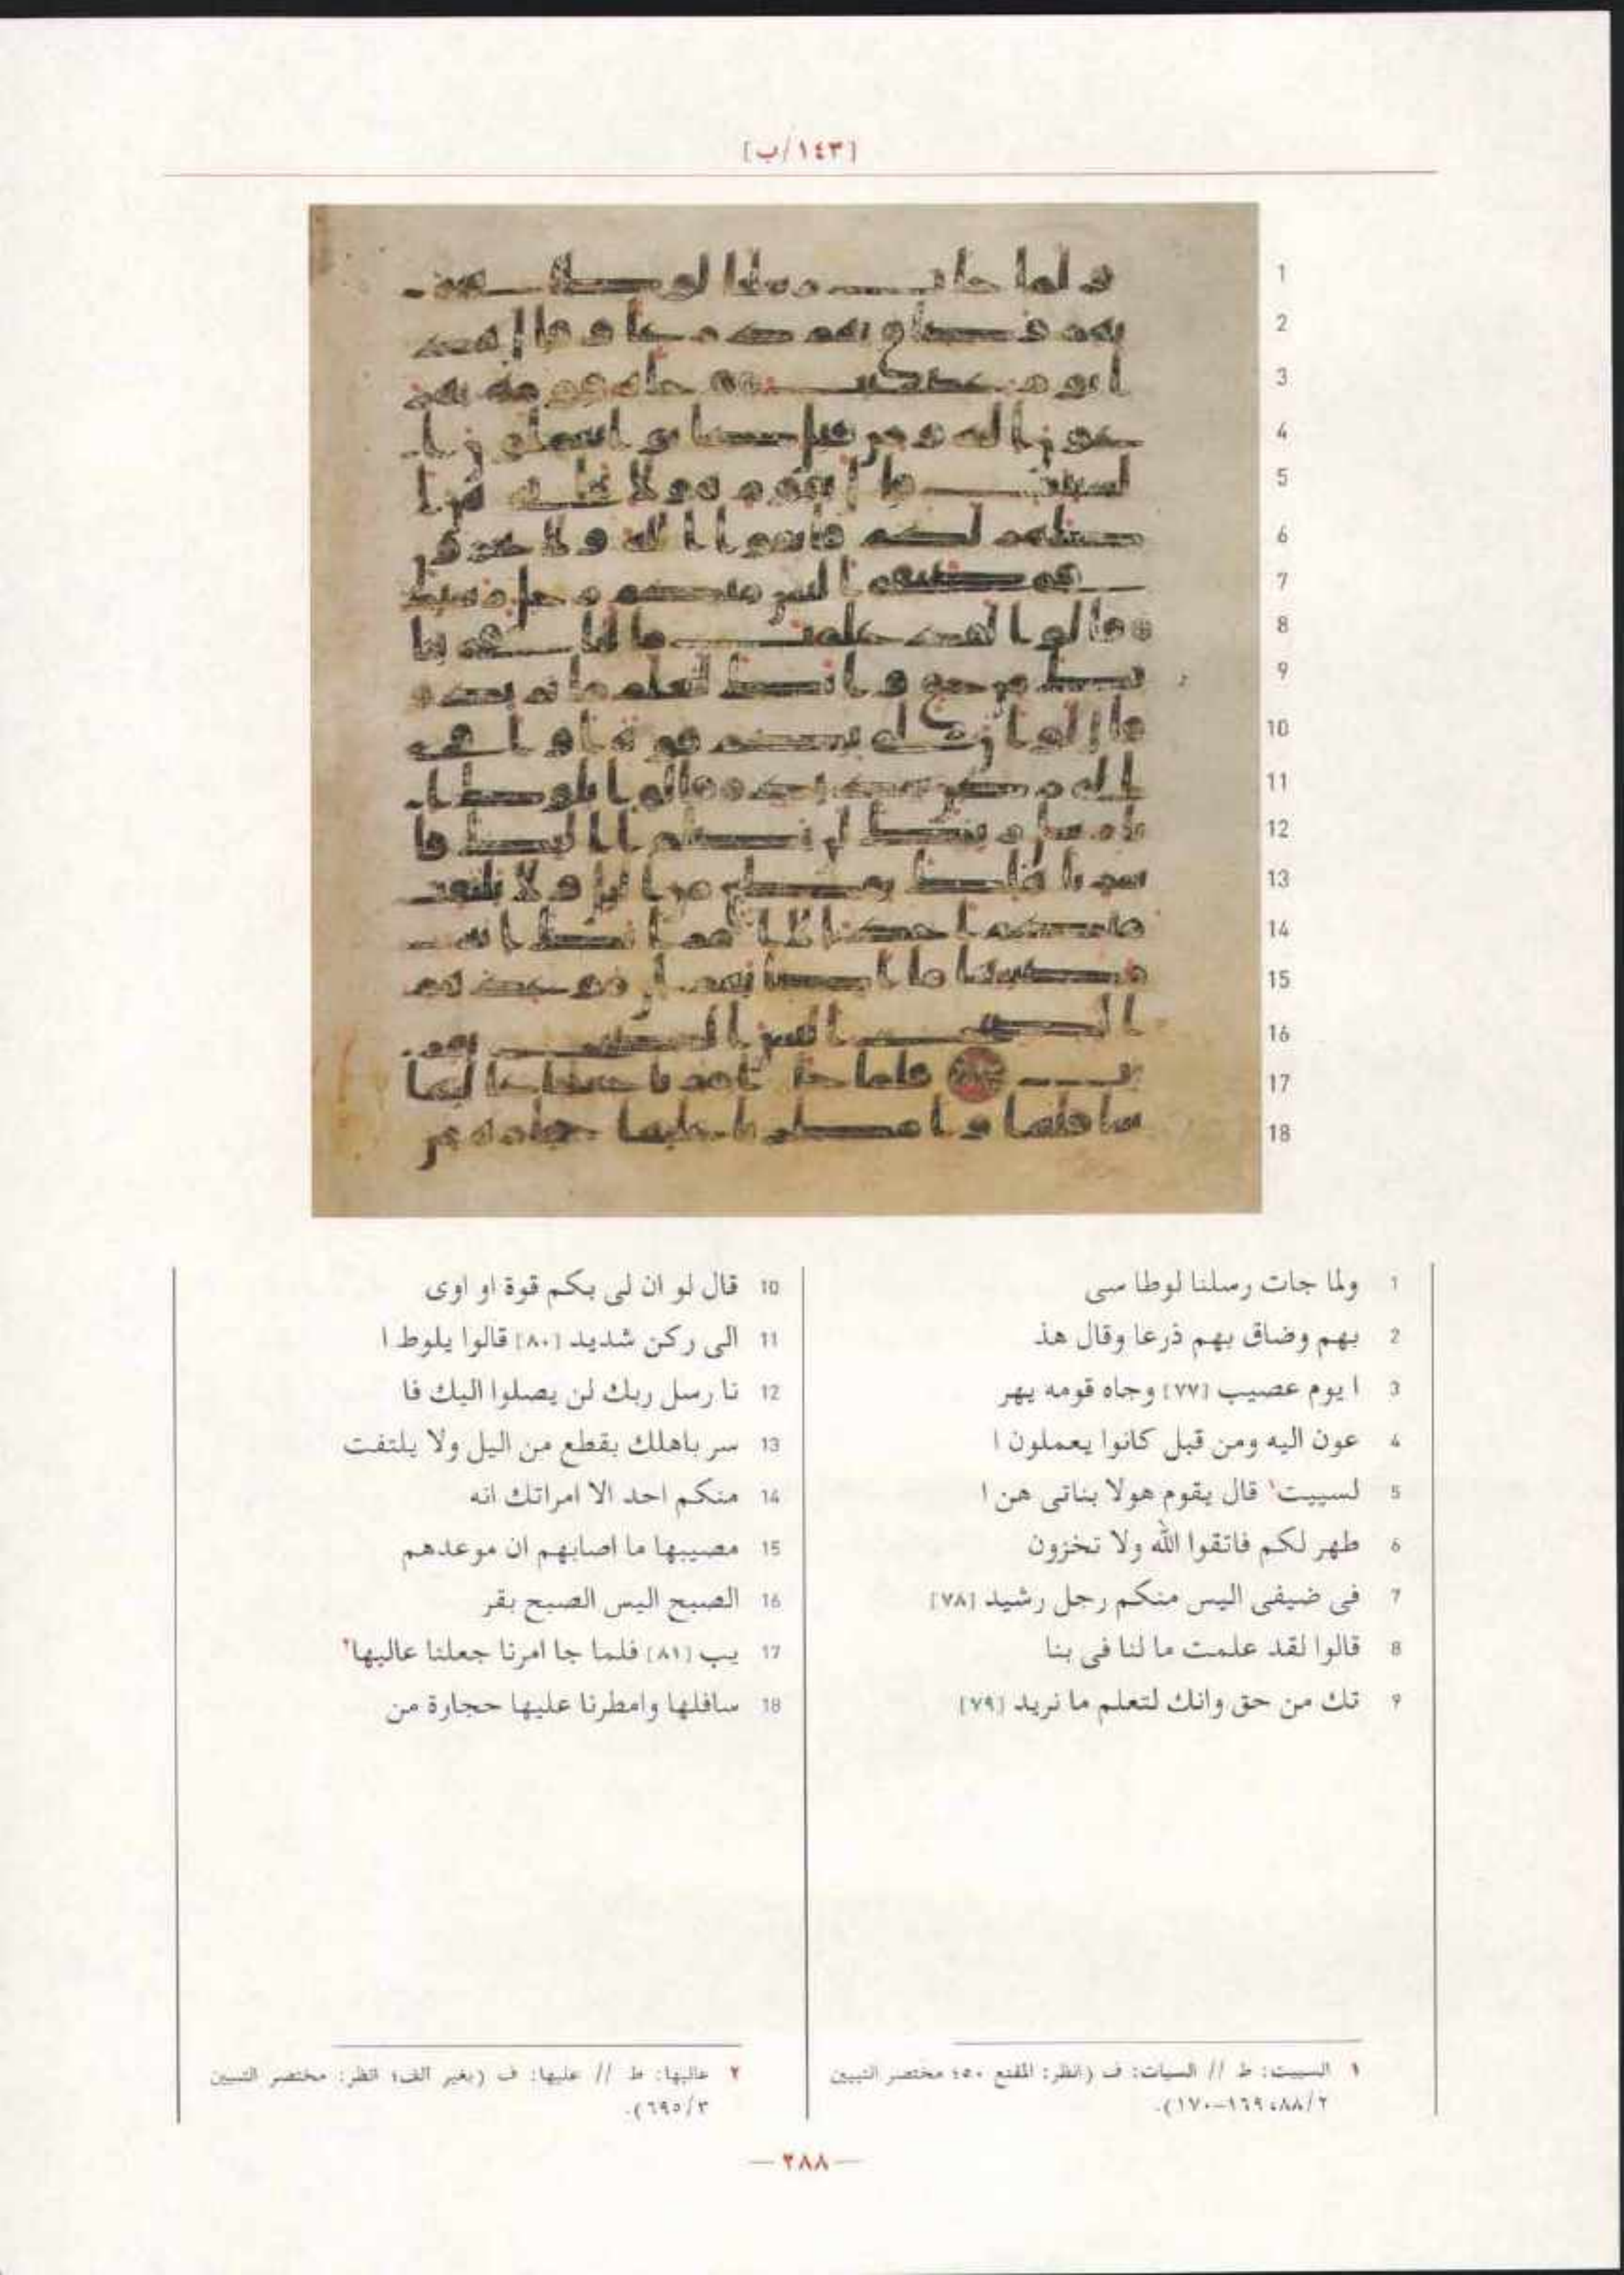 [١٤٣/ب]
1
2
3
4
5
6
7
8
9
10
11
12
13
14
15
16
17
18
1 ولما جات رسلنا لوطا سى
2 بهم وضاق بهم ذرعا وقال هذ
3 ا يوم عصيب [٧٧] وجاه قومه يهر
4 عون اليه ومن قبل كانوا يعملون ا
5 لسييت١ قال يقوم هولا بناتى هن ا
6 طهر لكم فاتقوا الله ولا تخزون
7 فى ضيفى اليس منكم رجل رشيد [٧٨]
8 قالوا لقد علمت ما لنا فى بنا
9 تك من حق وانك لتعلم ما نريد [٧٩]
10 قال لو ان لى بكم قوة او اوى
11 الى ركن شديد [٨٠] قالوا يلوط ا
12 نا رسل ربك لن يصلوا اليك فا
13 سر باهلك بقطع من اليل ولا يلتفت
14 منكم احد الا امراتك انه
15 مصيبها ما اصابهم ان موعدهم
16 الصبح اليس الصبح بقر
17 يب [٨١] فلما جا امرنا جعلنا عاليها٢
18 سافلها وامطرنا عليها حجارة من
١ السييت: ط // السيات: ف (انظر: المقنع ٥٠؛ مختصر التبيين
٢/٨٨، ١٦٩-١٧٠).
٢ عاليها: ط // عليها: ف (بغير الف؛ انظر: مختصر التبيين
٣/٦٩٥).
— ٢٨٨ —